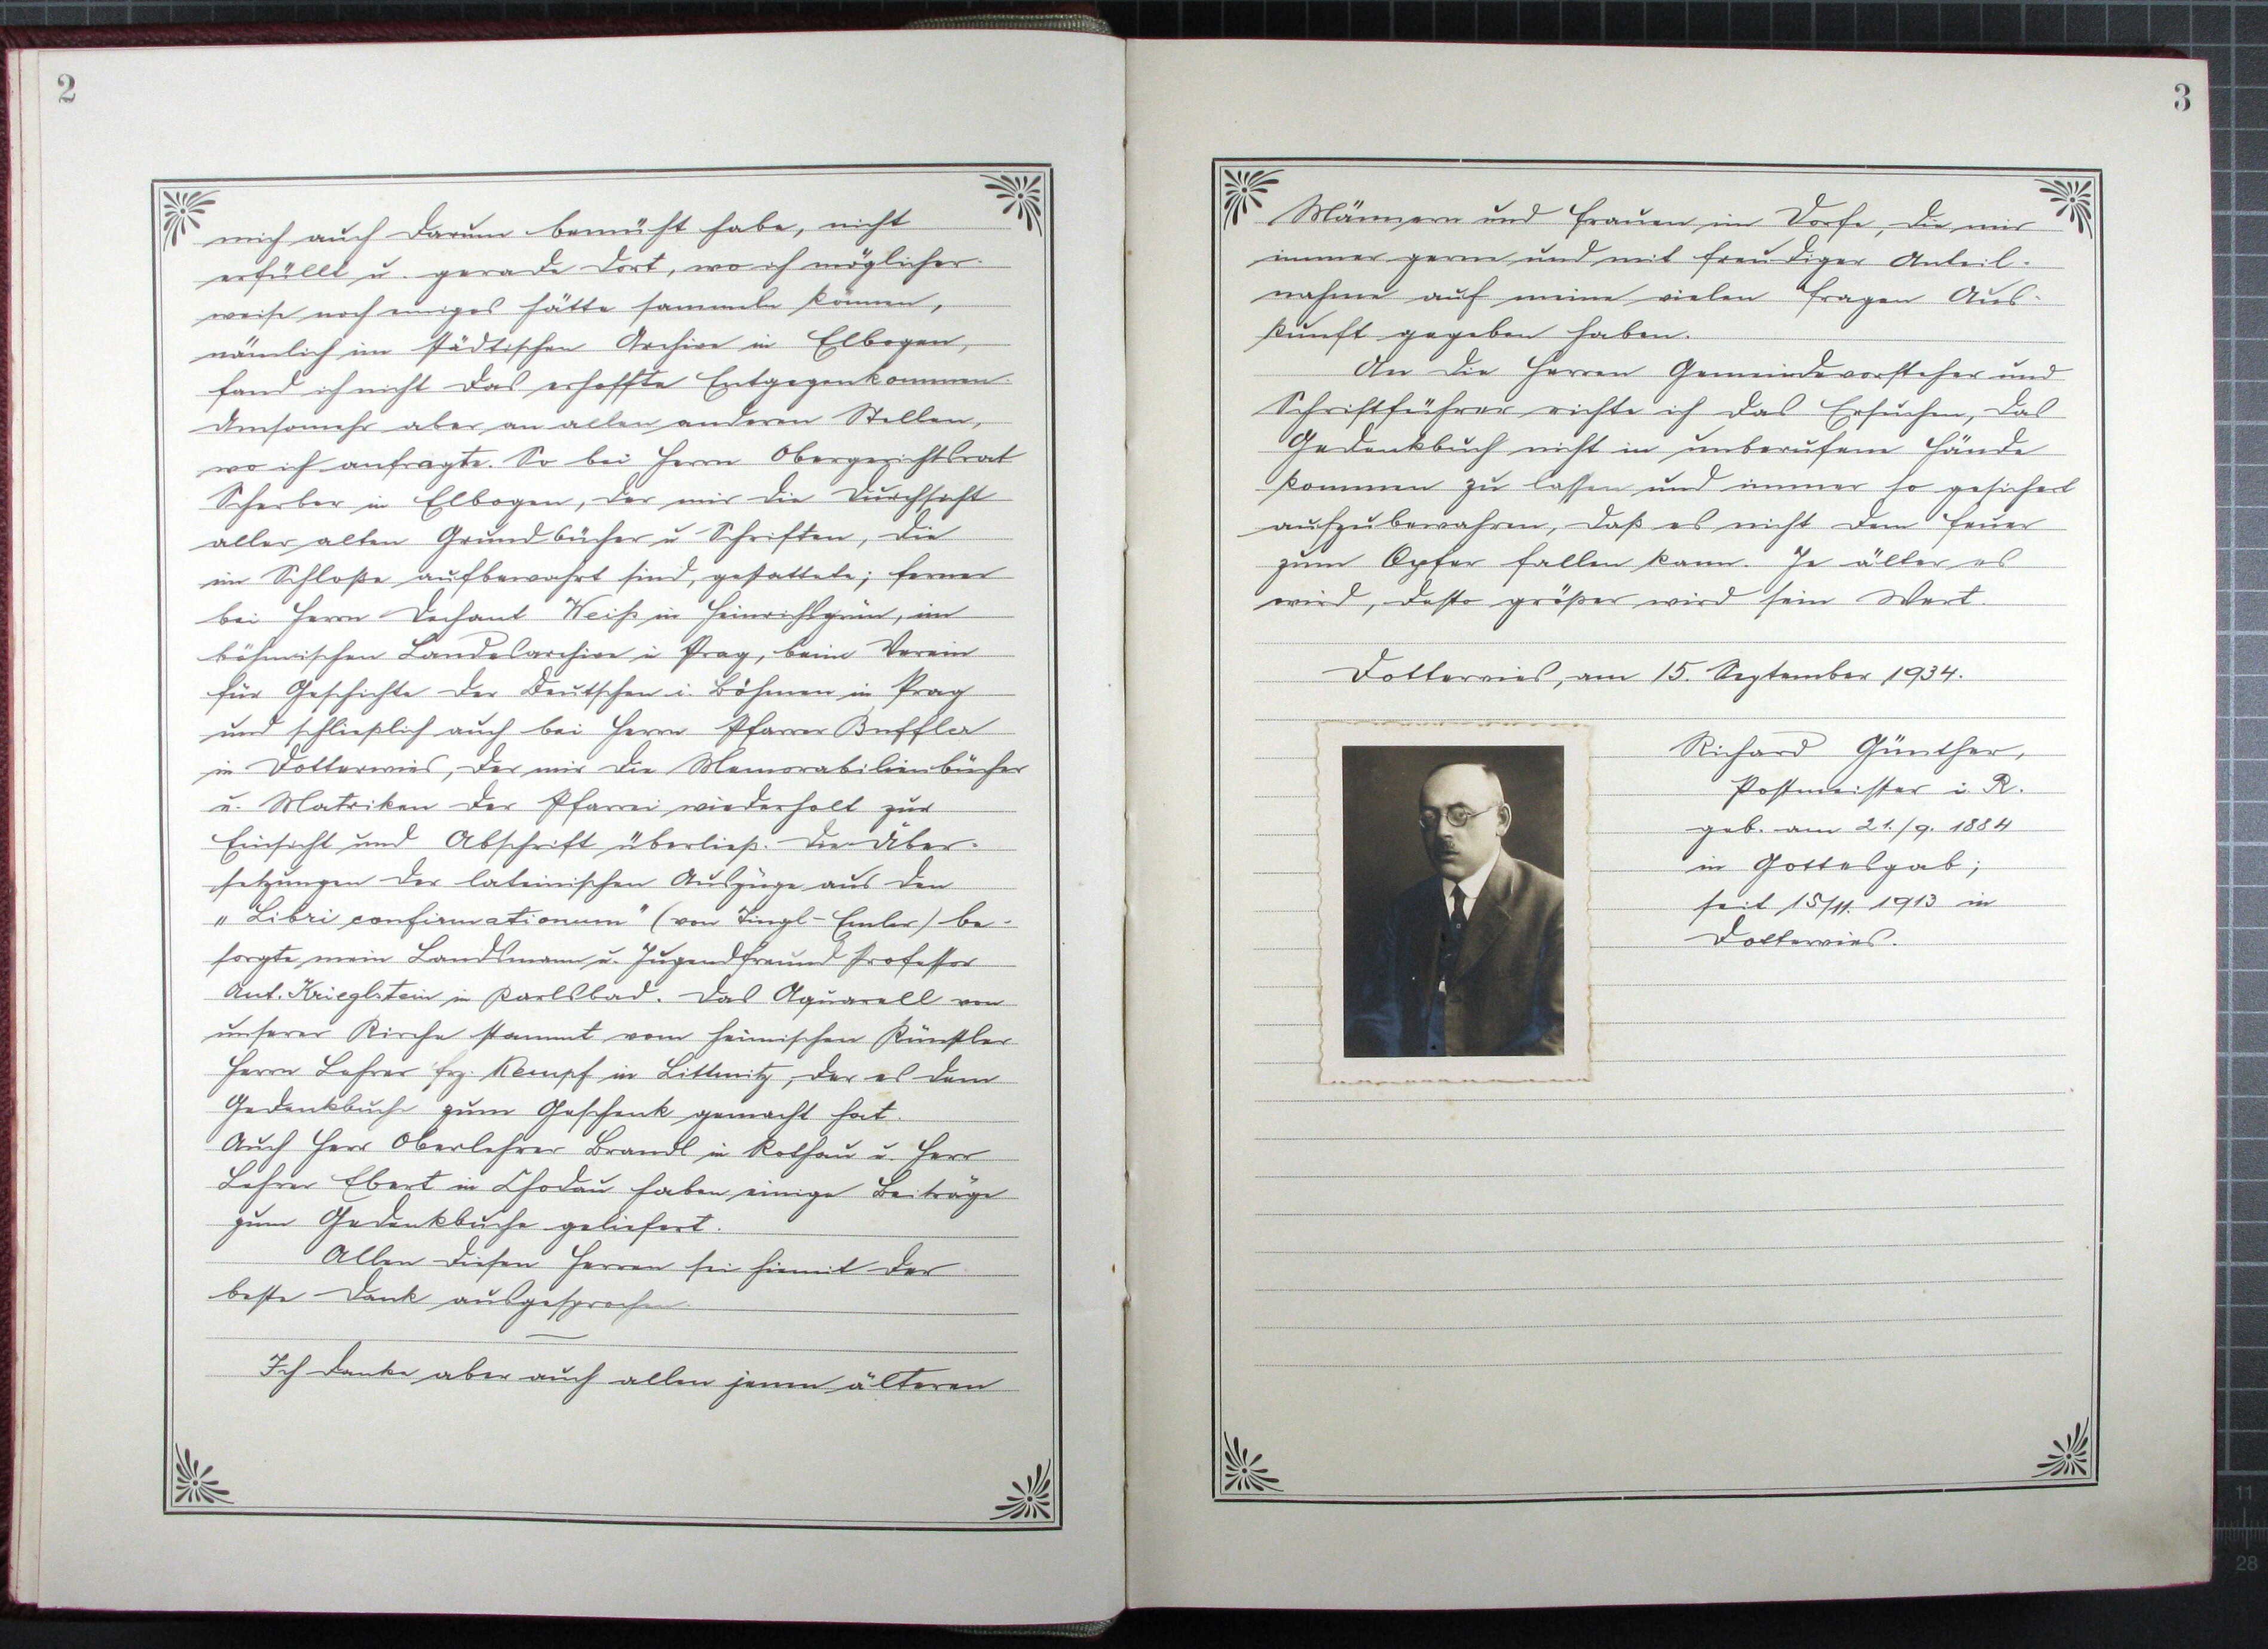 2
mich auch darum bemüht habe, nicht
erfüllt u. gerade dort, wo ich möglicher-
weise noch einiges hätte sammeln können,
nämlich im städtischen Archive in Elbogen,
fand ich nicht das erhoffte Entgegenkommen.
Umsomehr aber an allen anderen Stellen,
wo ich anfragte. So bei Herrn Obergerichtsrat
Scherber in Elbogen, der mir die Durchsicht
aller alten Grundbücher u Schriften, die
im Schloße aufbewahrt sind, gestattete; ferner
bei Herrn Dechant Weiß in Heinrichsgrün, im
böhmischen Landesarchive i Prag, beim Verein
für Geschichte der Deutschen i. Böhmen in Prag
und schließlich auch bei Herrn Pfarrer Buffler
in Dotterwies, der mir die Memorabilienbücher
u. Matriken der Pfarrei wiederholt zur
Einsicht und Abschrift überließ. Die Über-
setzungen der lateinischen Auszüge aus den
„Libri confirmationum" (von Tingl-Emler) be-
sorgte mein Landsmann u. Jugendfreund Professor
Ant. Krieglstein in Karlsbad. Das Aquarell von
unserer Kirche stammt vom heimischen Künstler
Herrn Lehrer Frz. Kempf in Littmitz, der es dem
Gedenkbuche zum Geschenk gemacht hat.
Auch Herr Oberlehrer Brandl in Rothau u. Herr
Lehrer Ebert in Chodau haben einige Beiträge
zum Gedenkbuche geliefert.
Allen diesen Herren sei hiemit der
beste Dank ausgesprochen.
Ich danke aber auch allen jenen älteren
3
Männern und Frauen im Dorfe, die mir
immer gerne und mit freudiger Anteil-
nahme auf meine vielen Fragen Aus-
kunft gegeben haben.
An die Herren Gemeindevorsteher und
Schriftführer richte ich das Ersuchen, das
Gedenkbuch nicht in unberufene Hände
kommen zu lassen und immer so gesichert
aufzubewahren, daß es nicht dem Feuer
zum Opfer fallen kann. Je älter es
wird, desto größer wird sein Wert.
Dotterwies, am 15. September 1934.
Richard Günther,
Postmeister i. R.
geb. am 21./9. 1884
in Gottesgab;
seit 15/11. 1913 in
Dotterwies.
11
28